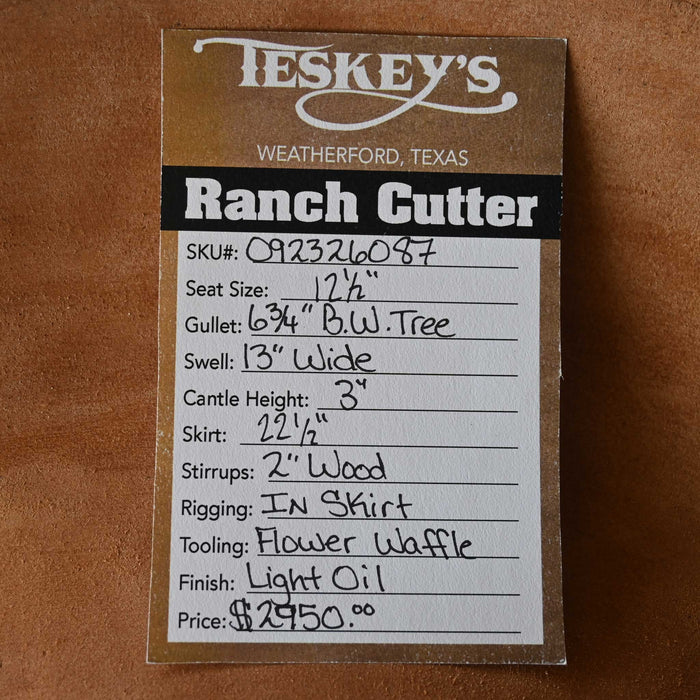 TESKEY'S
WEATHERFORD, TEXAS
Ranch Cutter
SKU#: 092326087
Seat Size: 12½"
Gullet: 6¾" B.W. Tree
Swell: 13" Wide
Cantle Height: 3"
Skirt: 22½"
Stirrups: 2" Wood
Rigging: IN Skirt
Tooling: Flower Waffle
Finish: Light Oil
Price: $2950.00